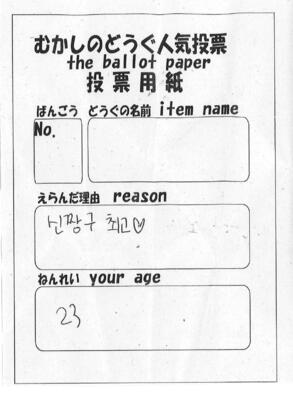 むかしのどうぐ人気投票
the ballot paper
投票用紙
ばんごう どうぐの名前 item name
No.
えらんだ理由 reason
신짱구 최고♡
ねんれい your age
23